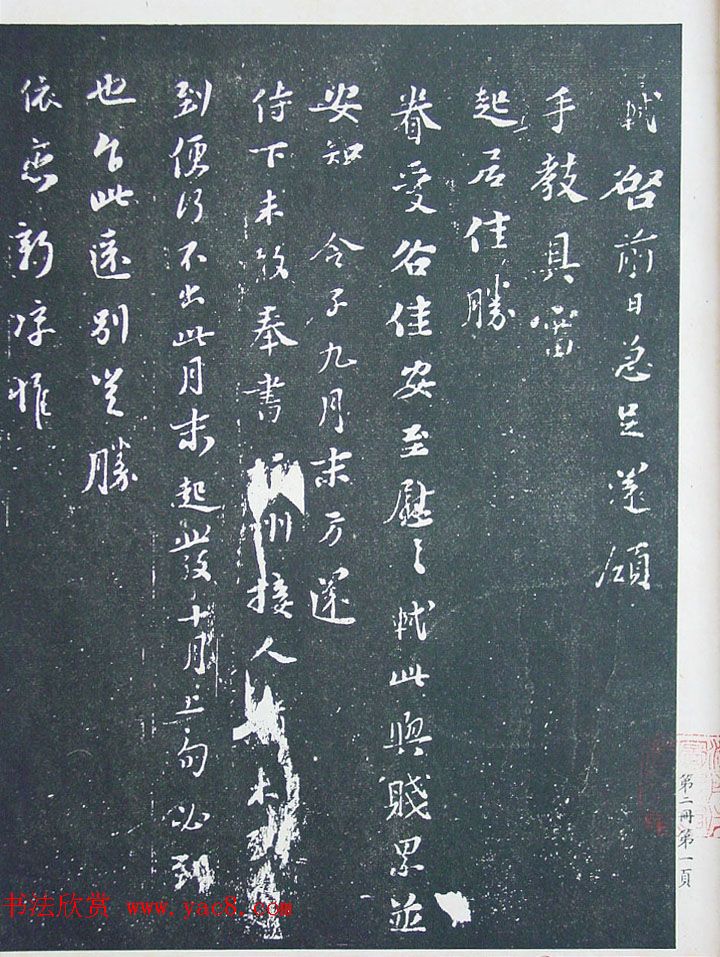 軾啓前日急足還領
手教具審
起居佳勝
眷愛各佳安至慰〻軾此與賤累並
安知 令子九月末方還
侍下未敢奉書 州接人 未到
到便行不出此月末起此致十月上旬必到
也乍此遠別 勝
依戀新凉惟
第二冊第一頁
书法欣赏 www.yac8.com